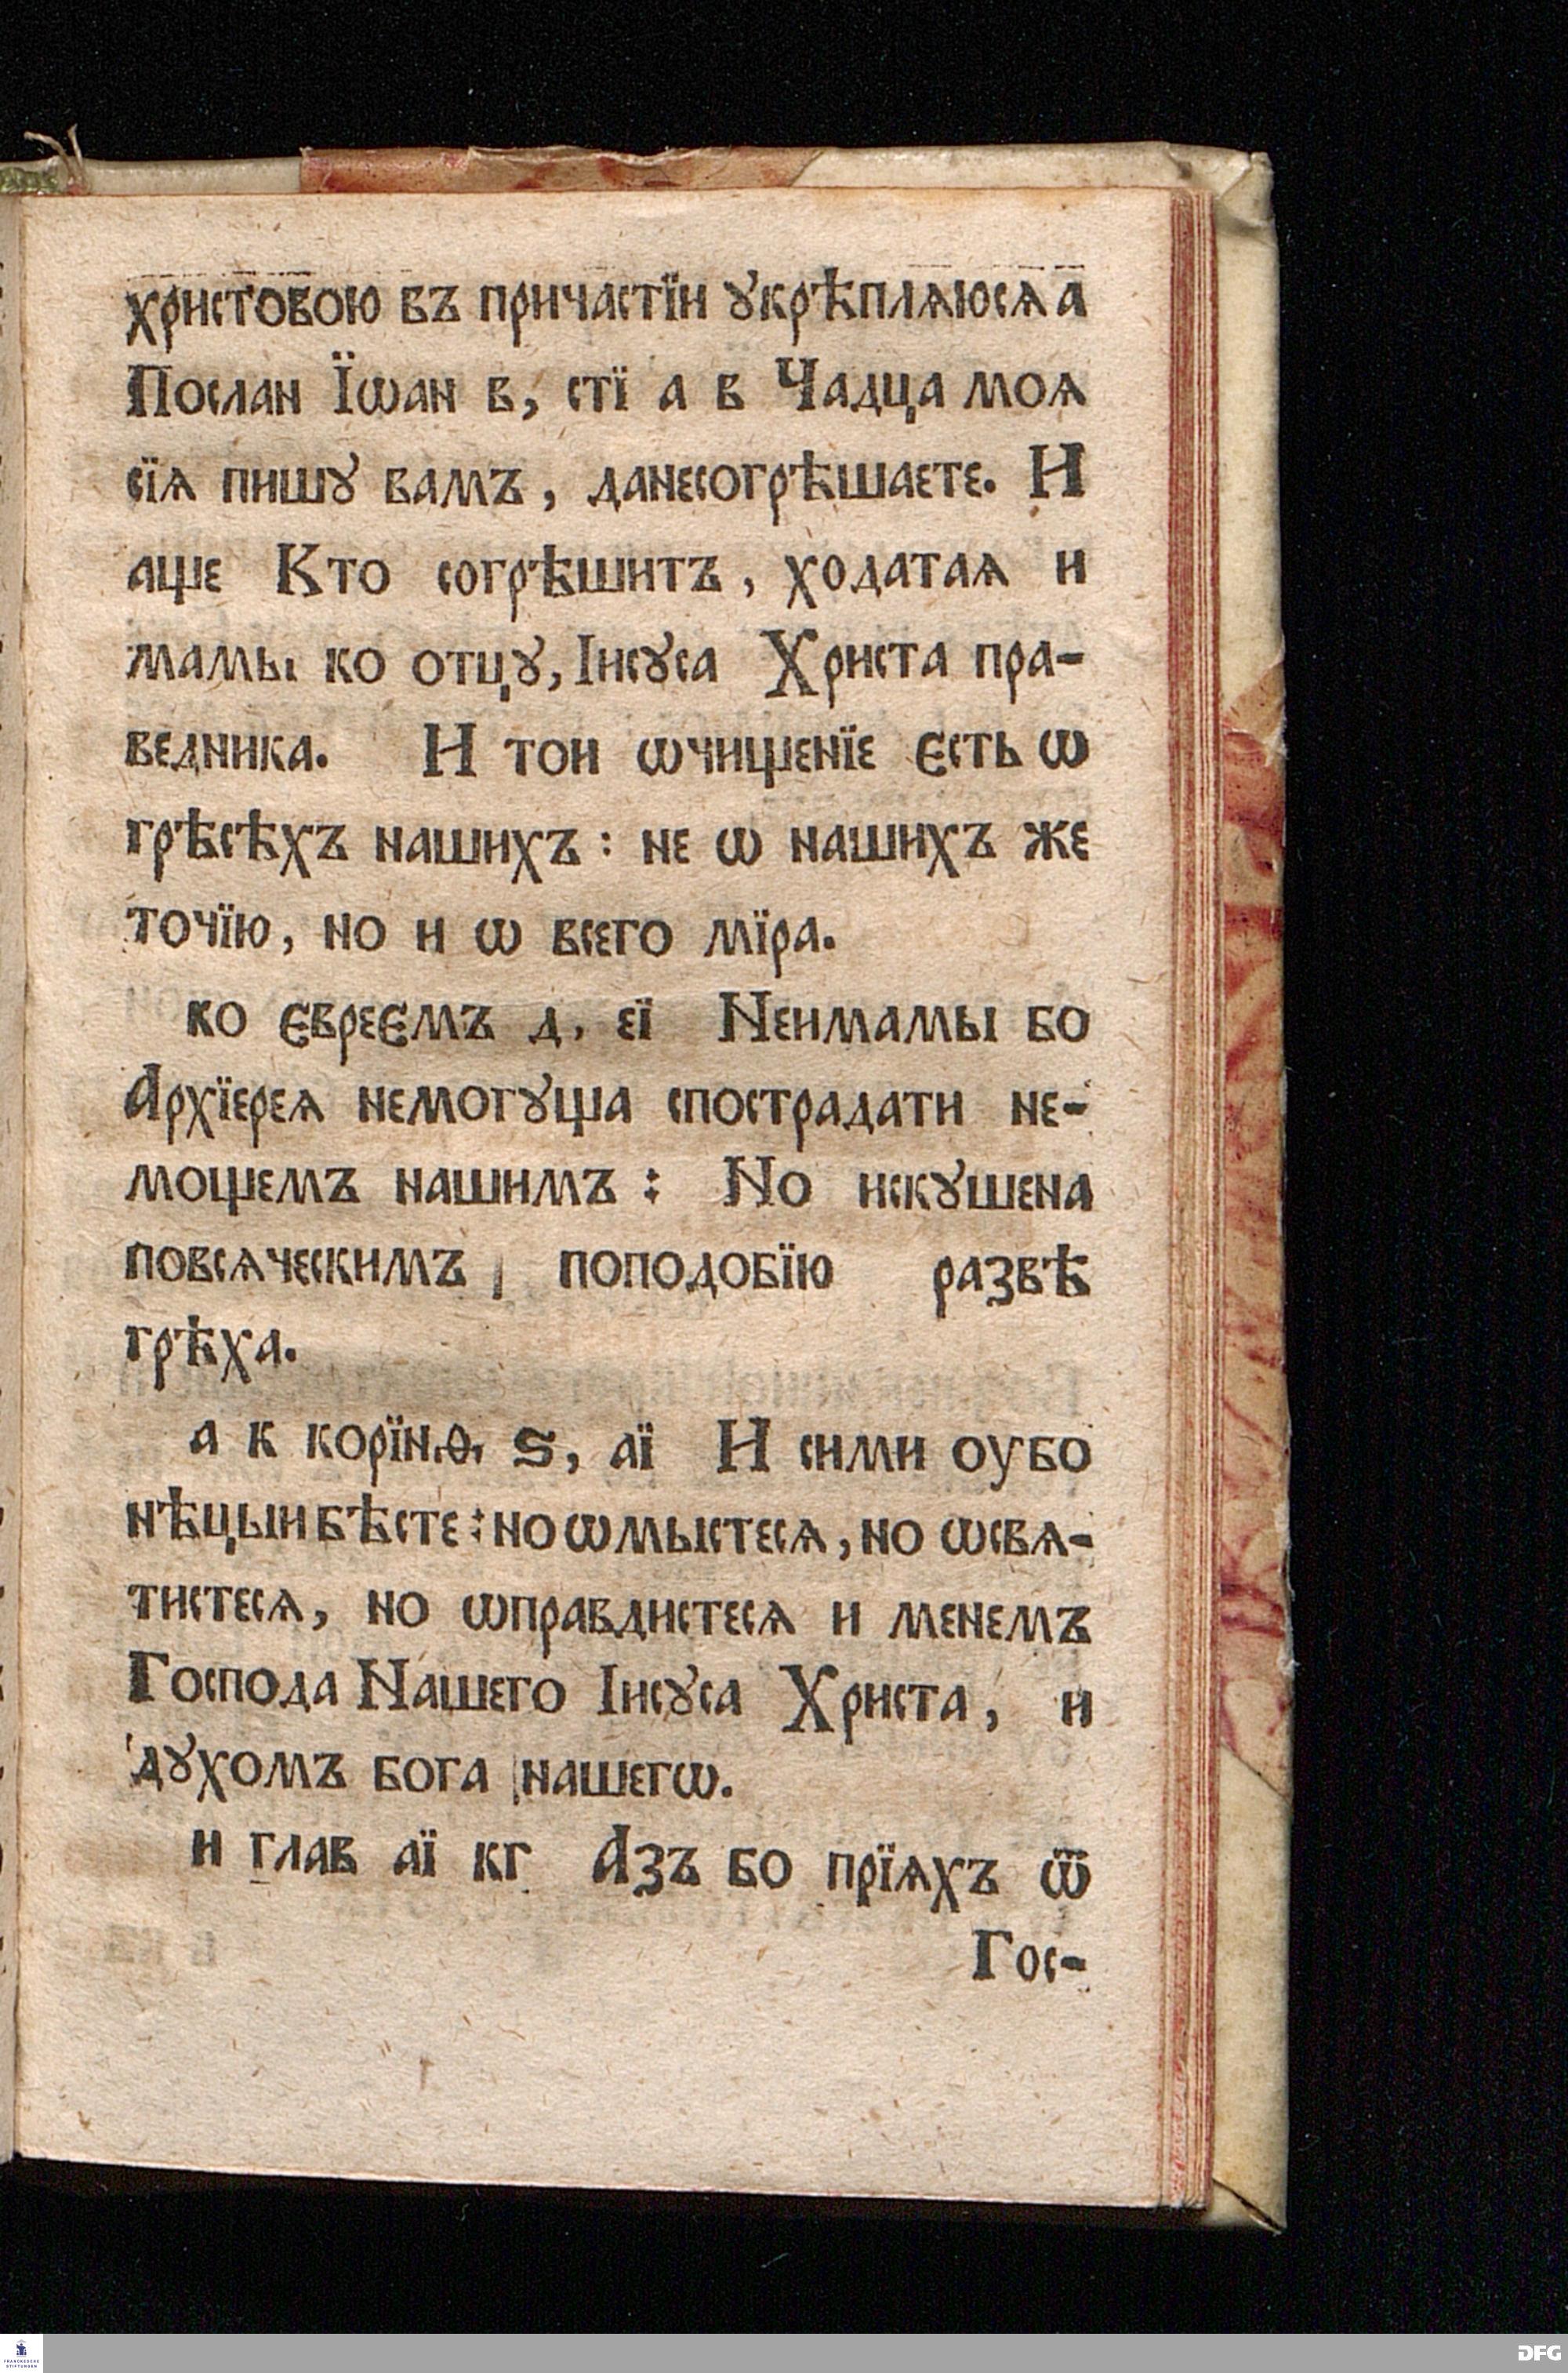 христовою въ причастїи ꙋкрѣплѧюсѧ а
Послан Їѡан в, стї а в Чадца моѧ
сїѧ пишꙋ вамъ, данесогрѣшаете. И
аще Кто согрѣшитъ, ходатаѧ и
мамы ко отцꙋ, Іисꙋса Христа пра-
ведника. И тои ѡчищенїе єсть ѡ
грѣсѣхъ нашихъ : не ѡ нашихъ же
точїю, но и ѡ всего мїра.
ко євреємъ д, єї Неимамы бо
Архїереѧ немогꙋща спострадати не-
мощемъ нашимъ : Но искꙋшена
повсѧческимъ, поподобїю развѣ
грѣха.
а к корїнѳ, ѕ, аї И сими оубо
нѣцыибѣсте : но ѡмыстесѧ, но ѡсвѧ-
тистесѧ, но ѡправдистесѧ и менемъ
Господа Нашего Іисꙋса Христа, и
дꙋхомъ бога нашегѡ.
и глав аї кг Азъ бо прїѧхъ ѿ
Гос-
FRANCKESCHE STIFTUNGEN
DFG